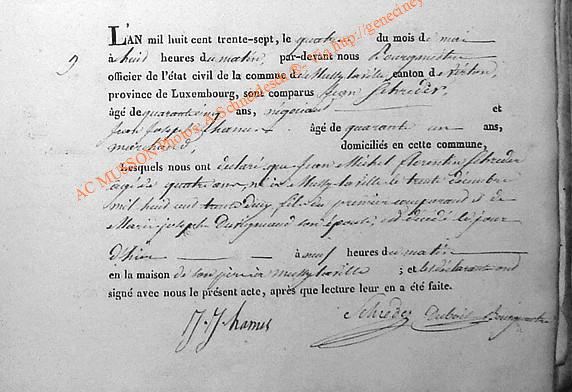 L'AN mil huit cent trente-sept, le quatre du mois de mai
9 à huit heures du matin, par-devant nous Bourgmestre
officier de l'état civil de la commune de Mussy la ville, canton de Virton,
province de Luxembourg, sont comparus Jean Schreder,
âgé de quarante cinq ans, négociant et
Jean Joseph Thames âgé de quarante un ans,
marchand, domiciliés en cette commune,
Lesquels nous ont déclaré que Jean Michel Florentin Schreder
agé de quatre ans, né à Mussy la ville le trente décembre
mil huit cent trente deux, fils du premier comparant et de
Marie Joseph son épouse, est décédé le jour
d'hier à neuf heures du matin
en la maison de son père à Mussy la ville ; et les déclarants ont
signé avec nous le présent acte, après que lecture leur en a été faite.
J. J. Schreder Dubois Bourgmestre
AC MUSSON Photos A. Schroeder © - Via http://geneciney